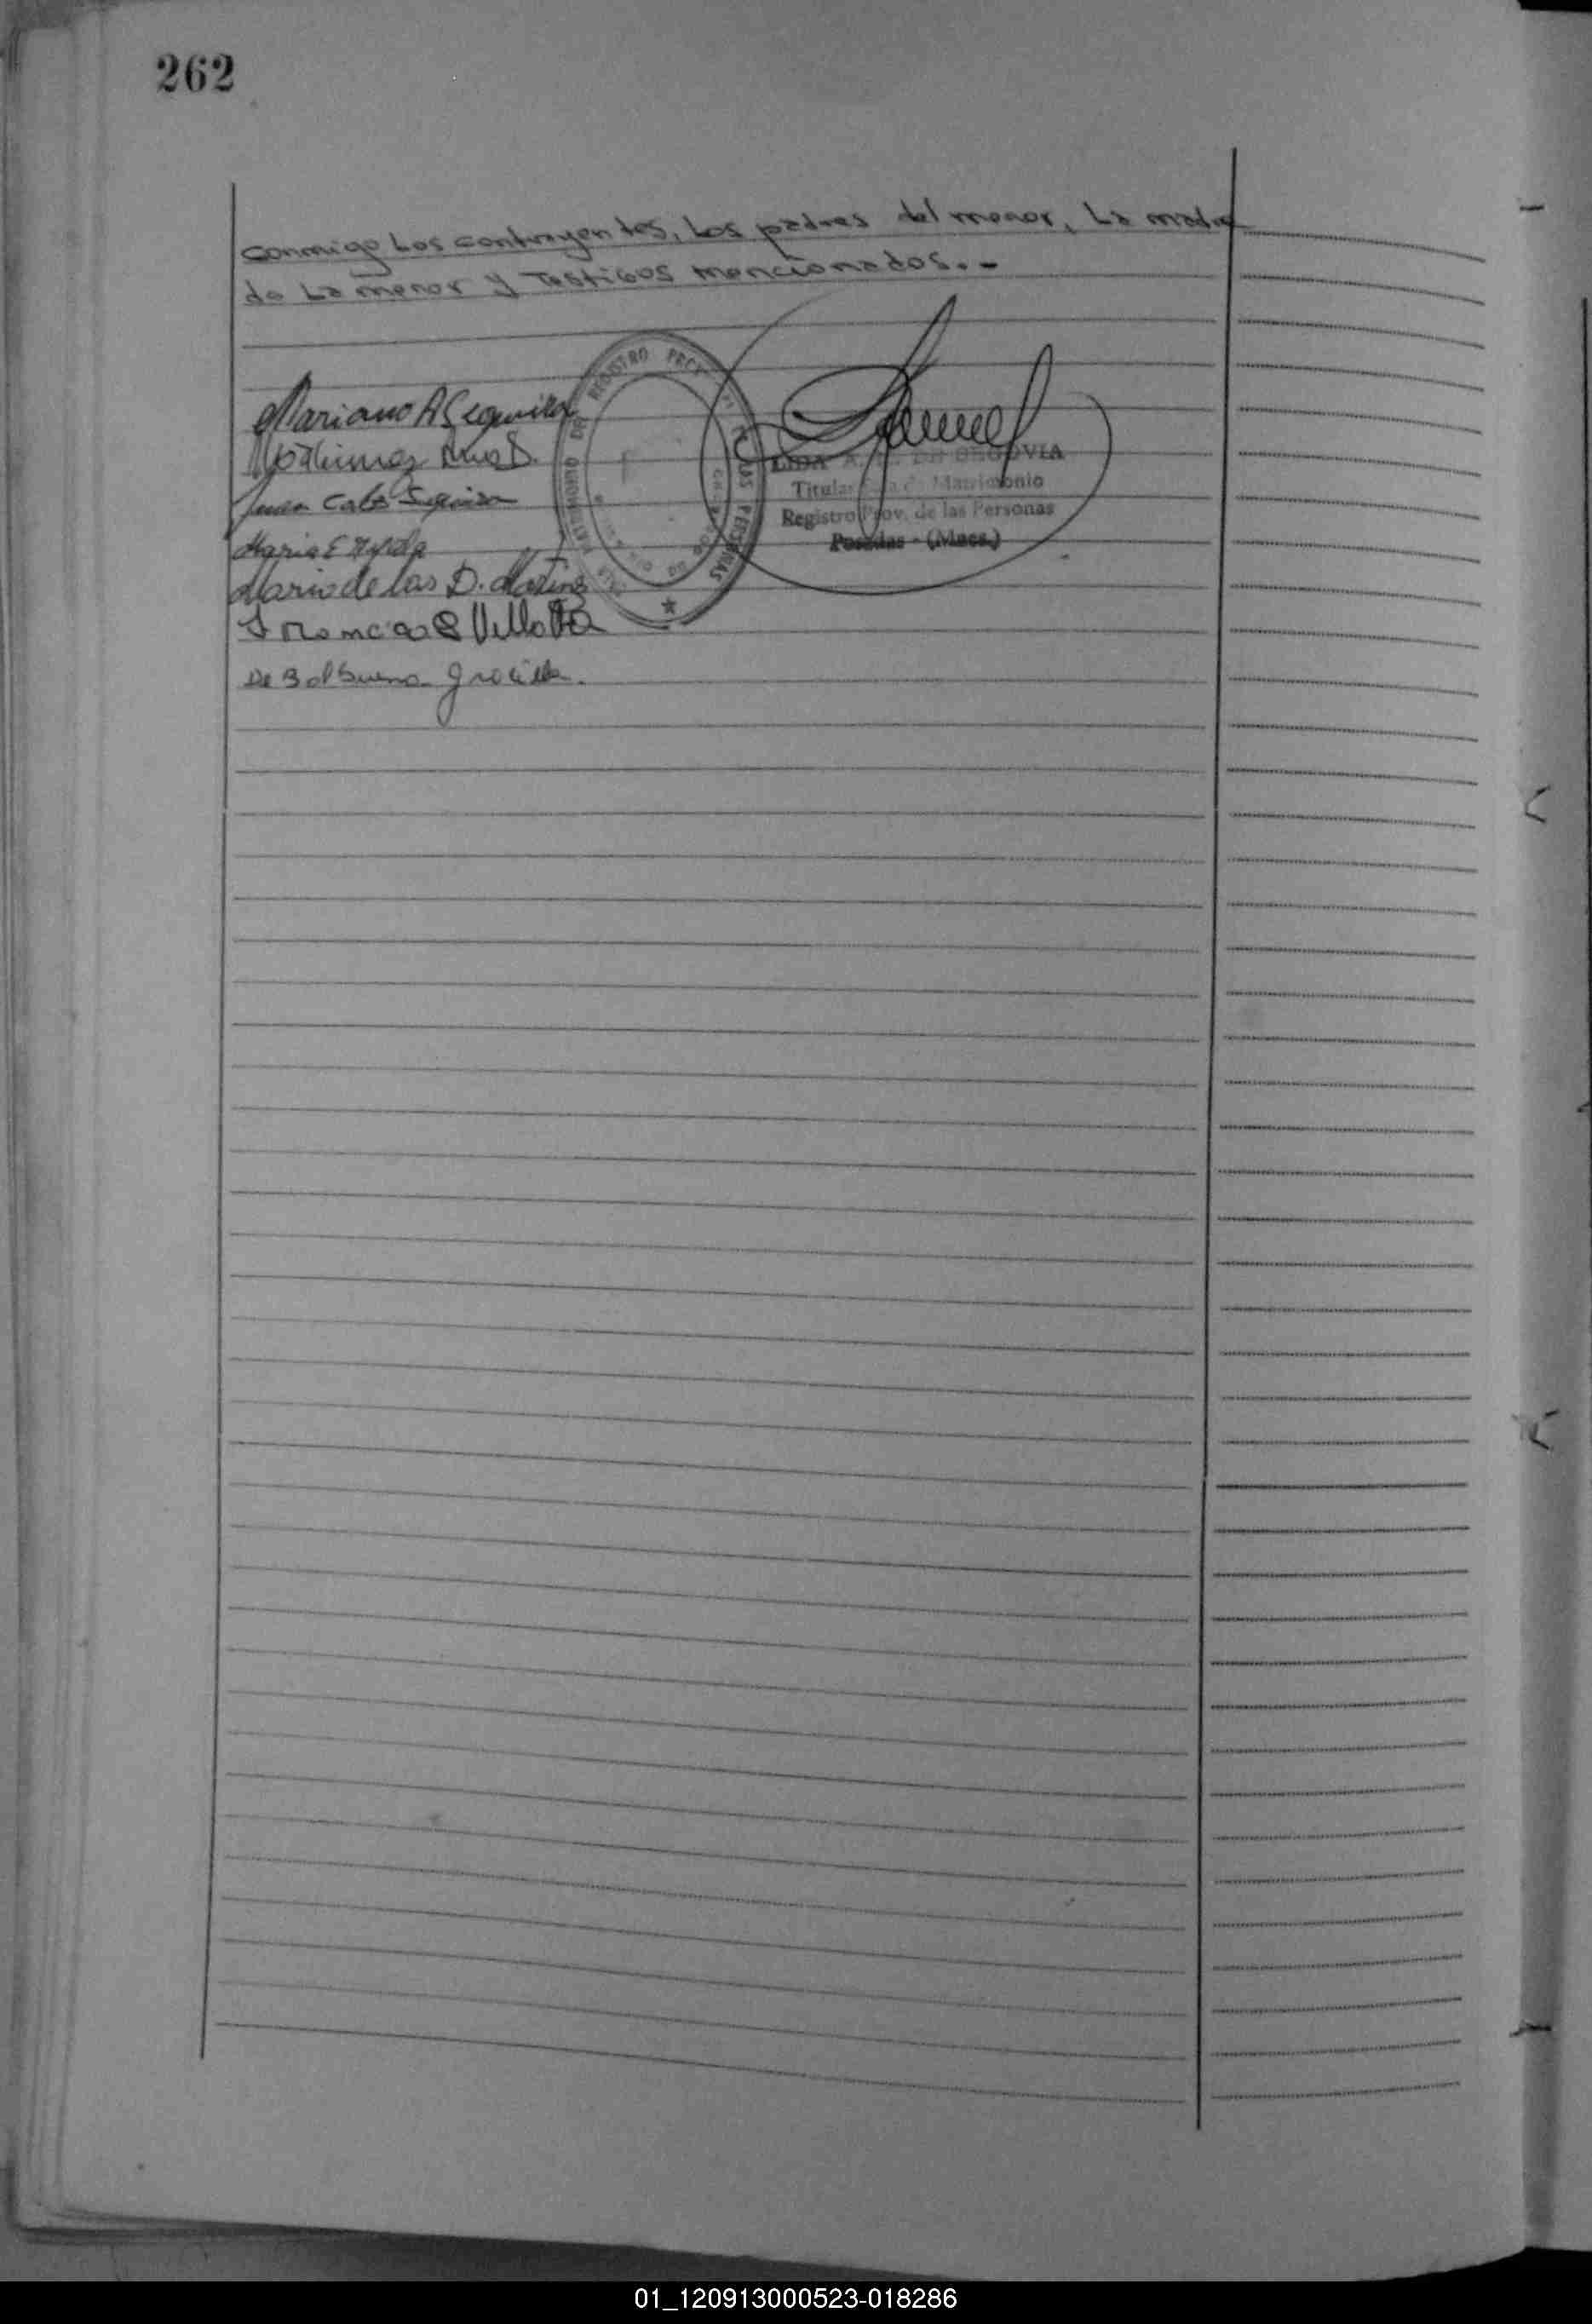 262
conmigo Los contrayentes, Los padres del menor, La madre
de La menor y Testigos mencionados.-
Mariano A Sequeira
Juan Carlos Sequeira
Maria E
Maria de las D. Martinez
Villalba
De Balbuena Graciela.
REGISTRO LAS PERSONAS
DE SEGOVIA
Titular Matrimonio
Registro Prov. de las Personas
Posadas - (Mnes.)
01_120913000523-018286